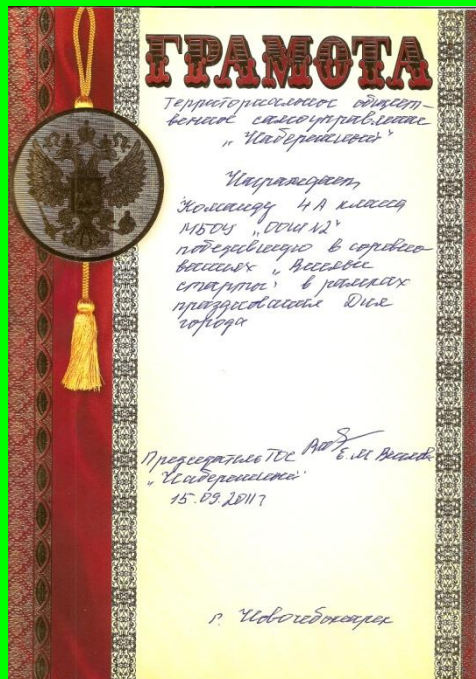 ГРАМОТА
Территориальное общест-
венное самоуправление
„Набережный"
Награждает
Команду 4А класса
МБОУ „ООШ N2"
победившую в соревно-
ваниях „Веселые
старты" в рамках
празднования Дня
города
Председатель ТОС
Е.М.
„Набережный"
15.09.2011г
г. Новочебоксарск